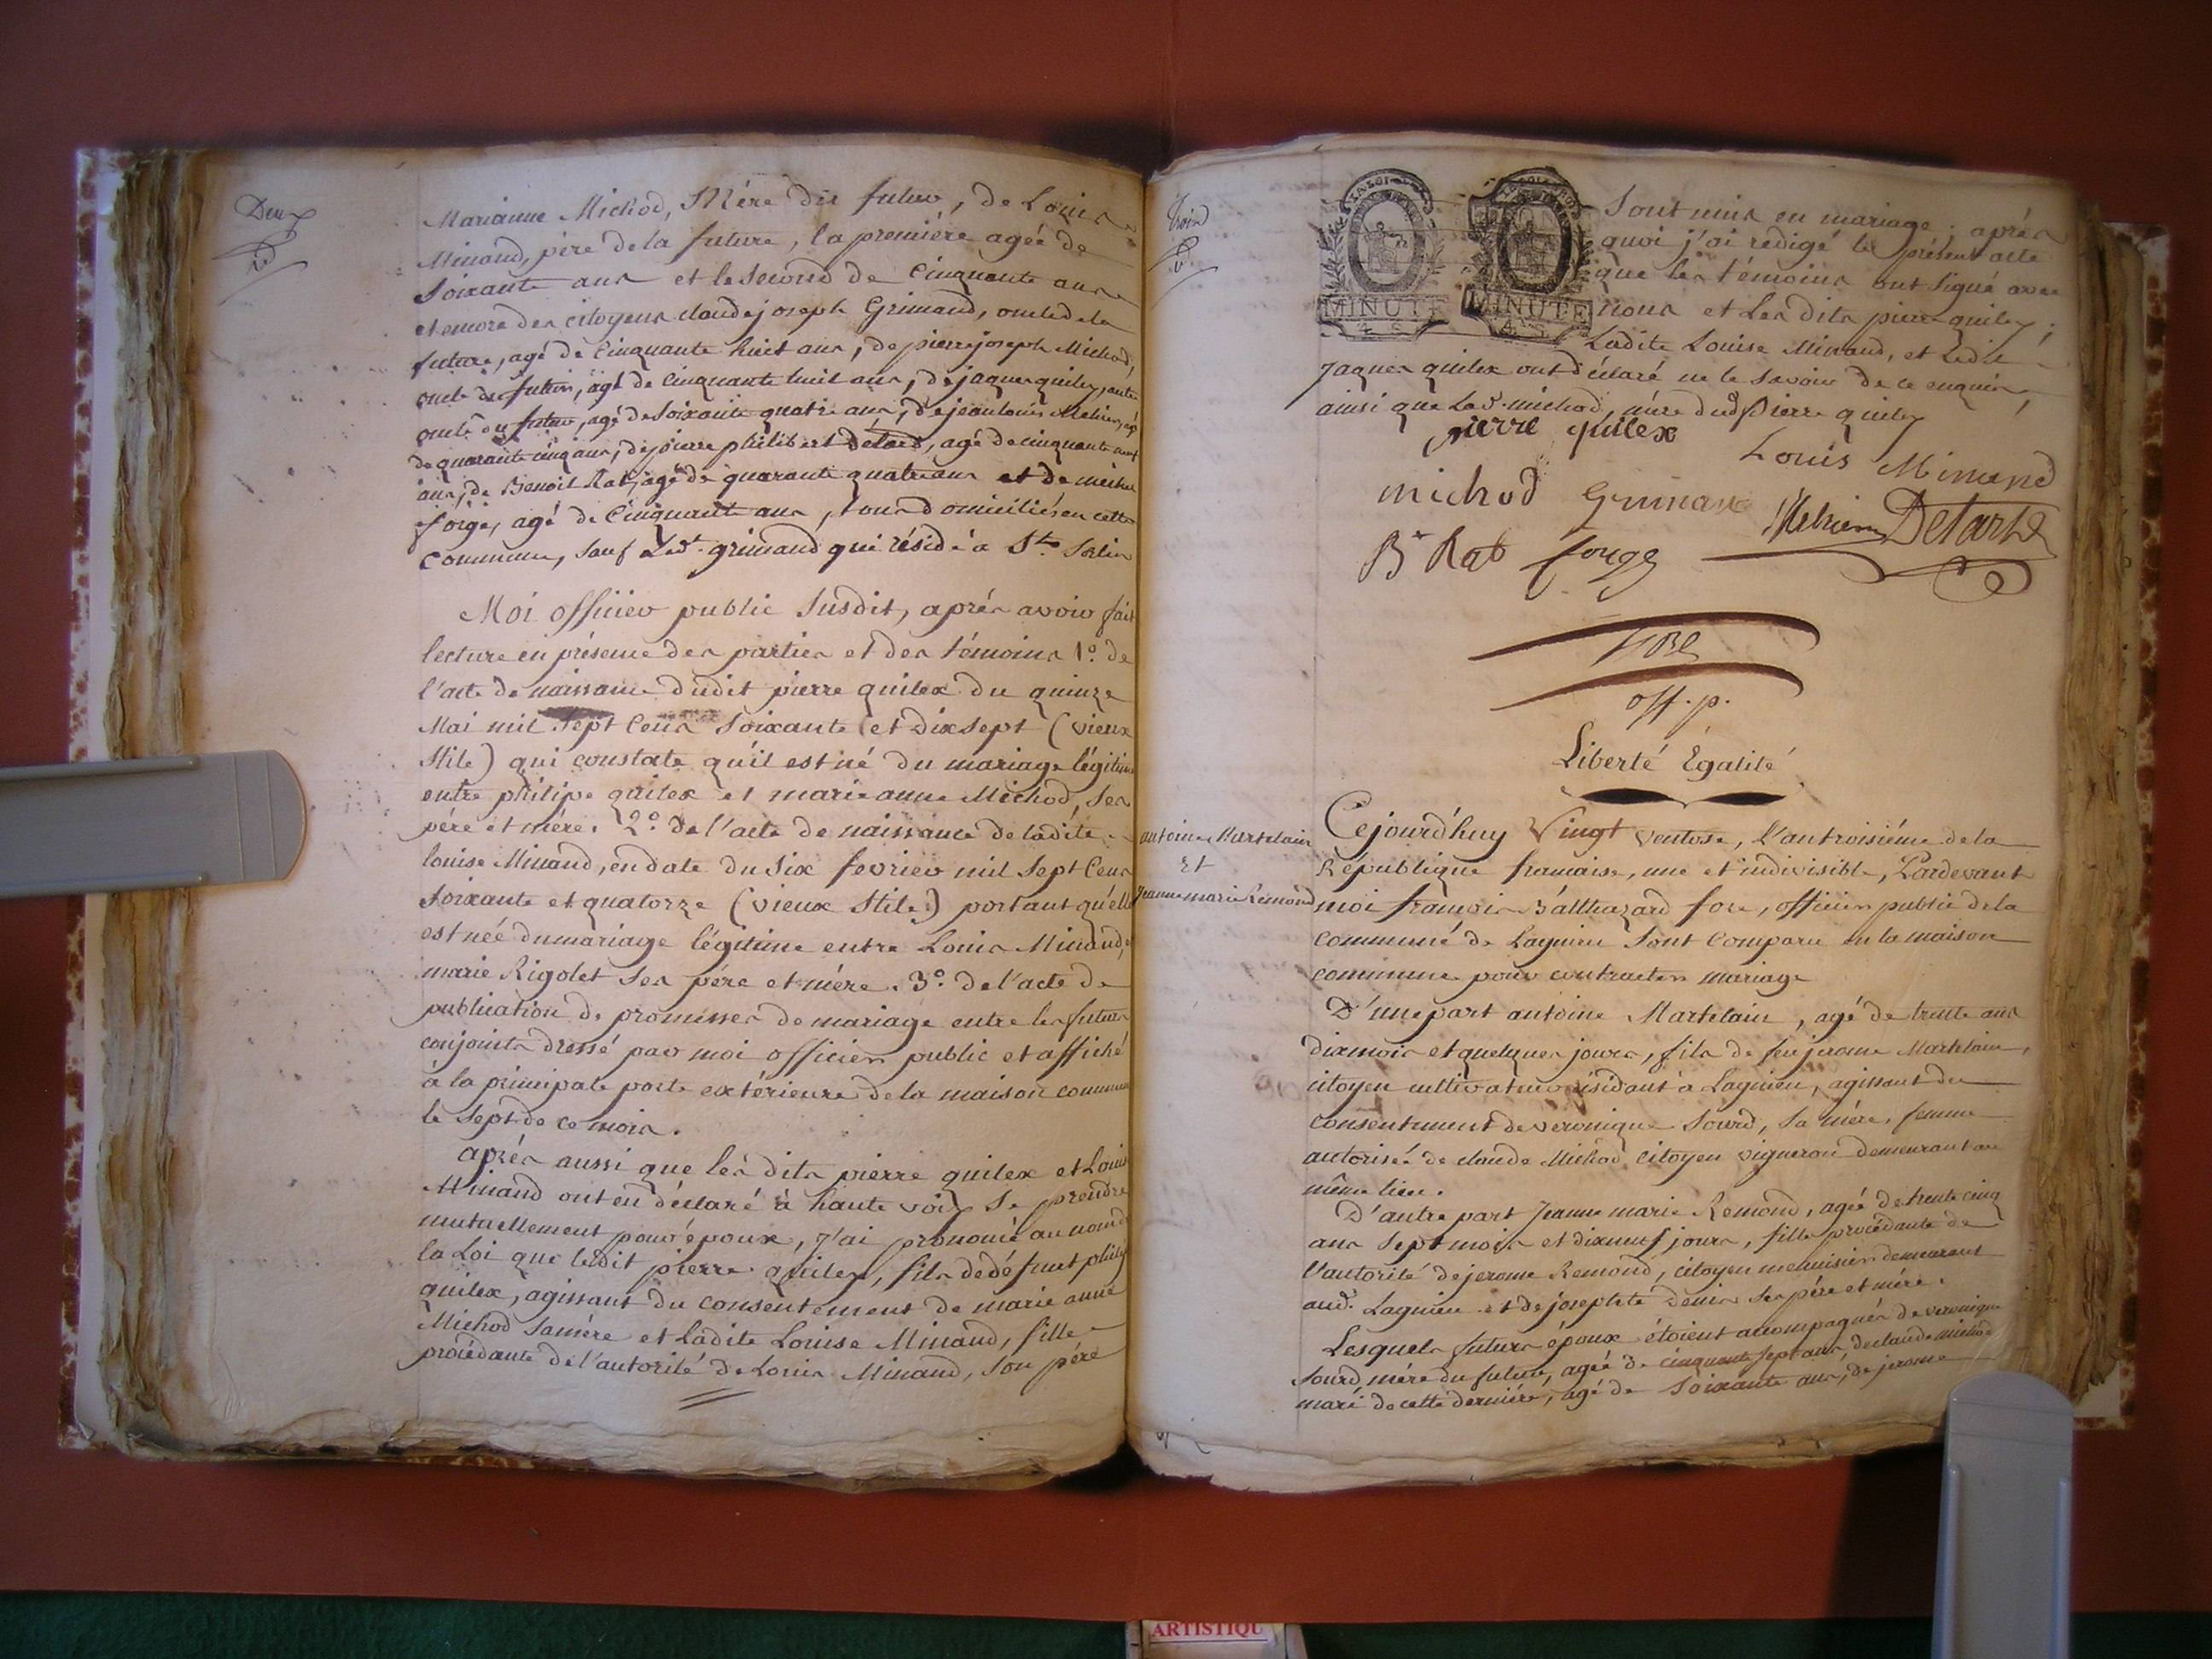 Deux
Marianne Michod, Mére du futur, de Louis
Minand, pére de la future, la premiére agée de
soixante ans et le second de Cinquante ans
et encore des citoyens claude joseph Grimand, oncle de la
future, agé de Cinquante huit ans, de pierre joseph Michod,
oncle du futur, agé de Cinquante huit ans, de jaques quilex, autre
oncle du futur, agé de soixante quatre ans, de jean louis Melier, agé
de quarante cinq ans, de pierre philibert agé de cinquante neuf
ans, de Benoit Rat, agé de quarante quatre ans et de
forge, agé de Cinquante ans, tous domiciliés en cette
Commune, sauf led.t grimand qui réside à St. Sorlin
Moi officier public susdit, aprés avoir fait
lecture en présence des parties et des témoins 1.º de
l'acte de naissance dudit pierre quilex du quinze
Mai mil sept Cens soixante et dix sept (vieux
Stile) qui constate qu'il est né du mariage légitime
entre philipe quilex et marie anne Michod, ses
pére et mére. 2.º de l'acte de naissance de ladite
louise Minand, en date du six fevrier mil sept Cens
soixante et quatorze (vieux Stile) portant qu'elle
est née du mariage légitime entre Louis Minand, et
marie Rigolet ses pére et mére. 3.º de l'acte de
publication de promesses de mariage entre les futurs
conjoints dressé par moi officier public et affiché
à la principale porte extérieure de la maison commune
le sept de ce mois.
aprés aussi que les dits pierre quilex et Louise
Minand ont eu déclaré à haute voix se prendre
mutuellement pour époux, j'ai prononcé au nom de
la Loi que ledit pierre quilex, fils de défunt philipe
quilex, agissant du consentement de marie anne
Michod sa mére et ladite Louise Minand, fille
procédante de l'autorité de Louis Minand, son pére
Trois
MINUTE
4 S
MINUTE
4 S
sont unis en mariage. aprés
quoi j'ai rédigé le présent acte
que les témoins ont signé avec
nous et les dits pierre quilex;
Ladite Louise Minand, et ledit
jaques quilex ont déclaré ne le savoir de ce enquis,
ainsi que lad. michod, mére dud. Pierre quilex
pierre quilex
Louis Minand
michod Grimand
B. Rat forge
off. p.
Liberté Égalité
antoine Martelain
Et
Jeanne marie Rémond
Cejourd'huy Vingt ventose, l'an troisiéme de la
République française, une et indivisible, Pardevant
moi françois Balthazard fore, officier public de la
commune de Lagnieu sont Comparu en la maison
commune pour contracter mariage
D'une part antoine Martelain, agé de trente ans
dix mois et quelques jours, fils de feu jerome Martelain,
citoyen cultivateur résidant à Lagnieu, agissant du
consentement de veronique Sourd, sa mére, femme
autorisée de claude Michod citoyen vigneron demeurant au
même lieu.
D'autre part Jeanne marie Remond, agée de trente cinq
ans sept mois et dix neuf jours, fille procédante de
l'autorité de jerome Remond, citoyen menuisier demeurant
aud. Lagnieu et de josephte Denis ses pére et mére.
Lesquels futurs époux étoient accompagnés de veronique
Sourd mére du futur, agée de cinquante sept ans, de claude michod
mari de cette derniére, agé de soixante ans, de jerome
ARTISTIQU